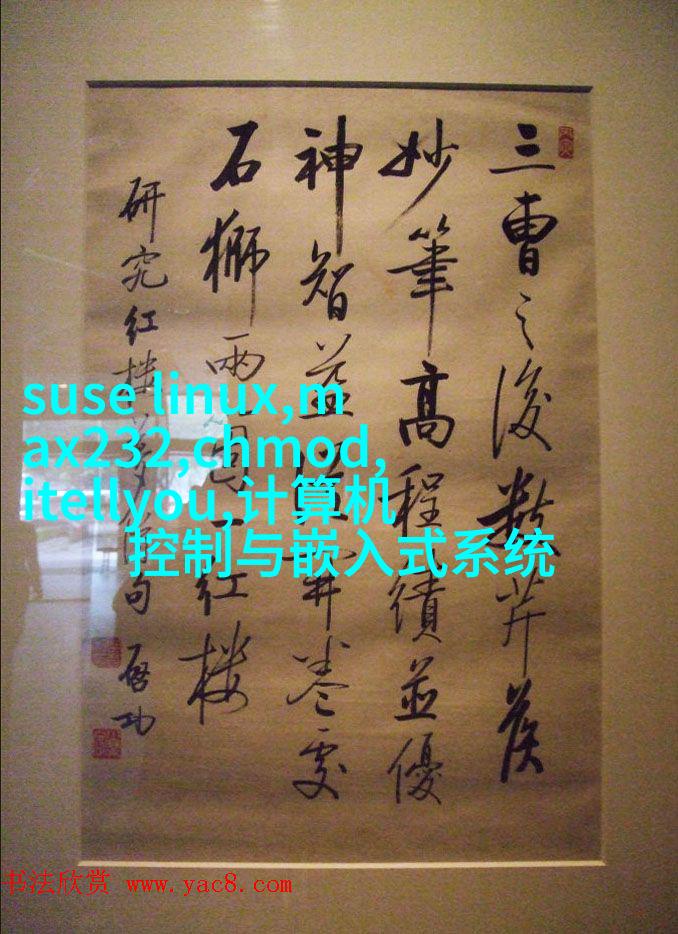 三曹之後數芹侯
妙筆高程績並優
神智益從開卷處
石獅兩個一紅樓
研究紅樓夢絕句 啓功
suse linux,m
ax232,chmod,
itellyou,计算机
控制与嵌入式系统
书法欣赏 www.yac8.com